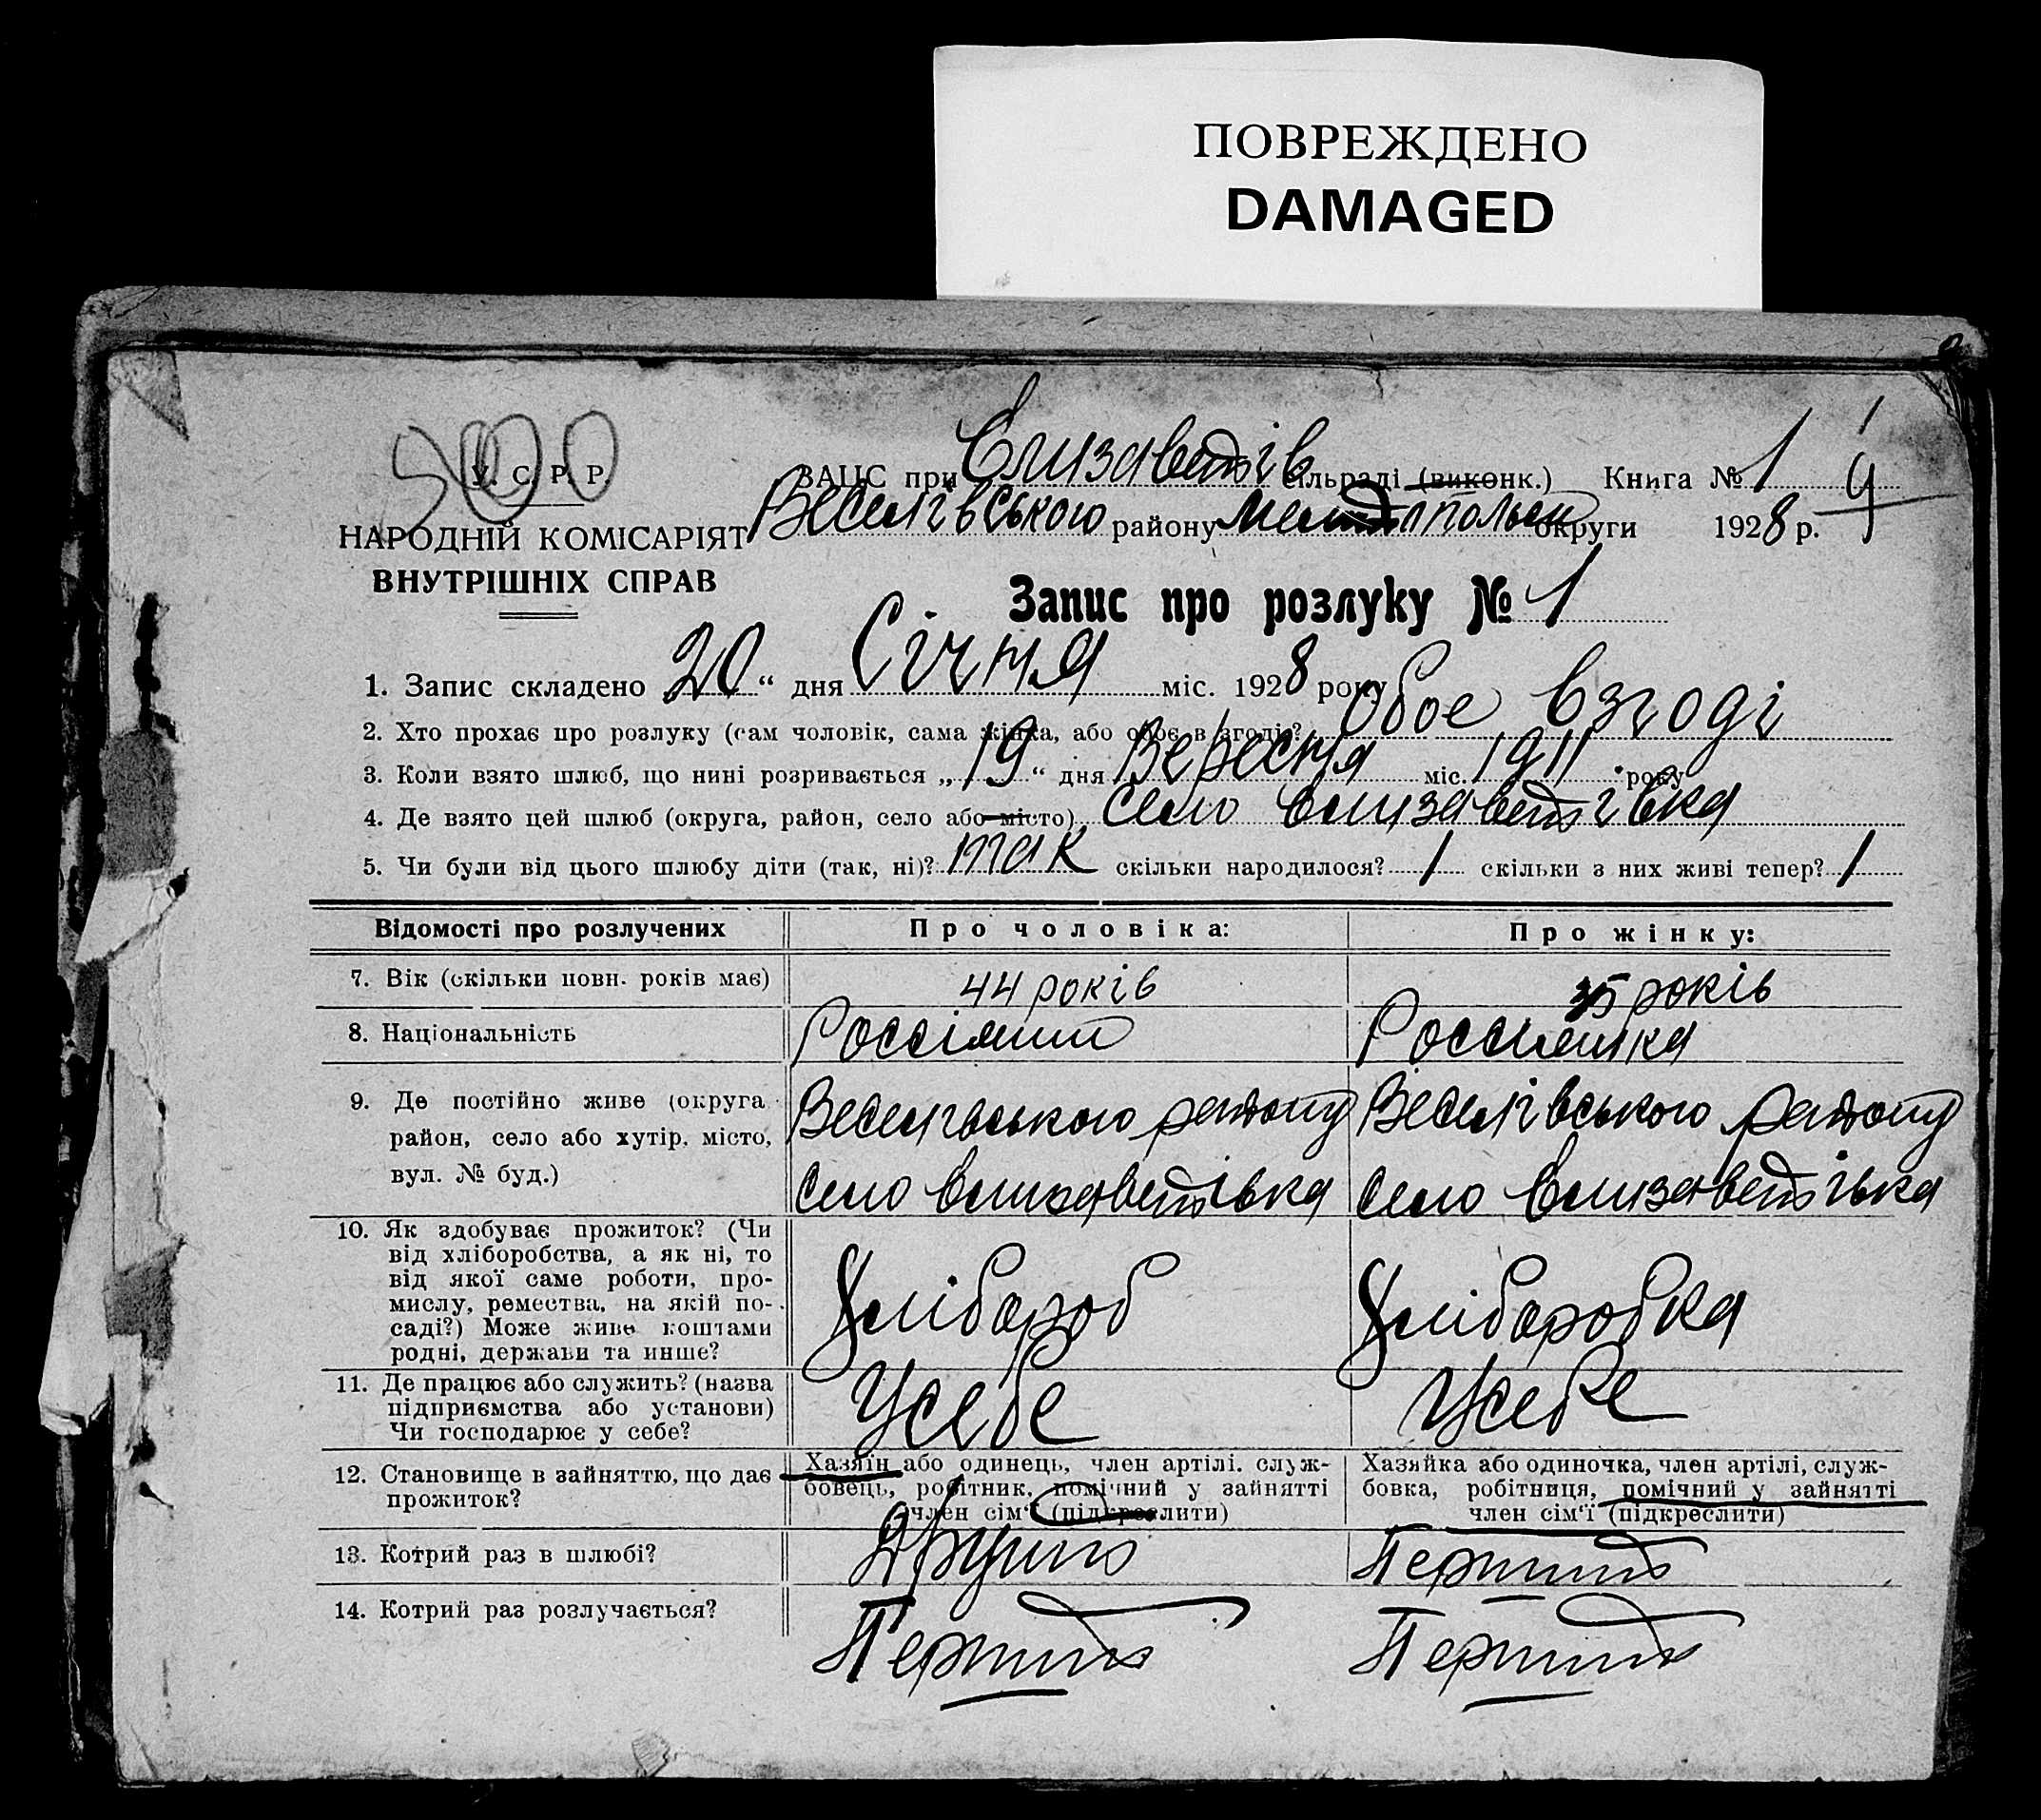 ПОВРЕЖДЕНО
DAMAGED
500
У. С. Р. Р.
НАРОДНІЙ КОМІСАРІЯТ
ВНУТРІШНІХ СПРАВ
ЗАЦС при Єлизаветів сільраді (виконк.) Книга № 1
Веселівського району округи 1928 р.
Запис про розлуку № 1
1. Запис складено 20 “ дня Січня міс. 1928 року
2. Хто прохає про розлуку (сам чоловік, сама жінка, або обоє в згоді)? Обое взгоді
3. Коли взято шлюб, що нині розривається „ 19 “ дня Вересня міс. 1911 року
4. Де взято цей шлюб (округа, район, село або місто) Село Єлизаветівка
5. Чи були від цього шлюбу діти (так, ні)? так скільки народилося? 1 скільки з них живі тепер? 1
Відомості про розлучених Про чоловіка: Про жінку:
7. Вік (скільки повн. років має) 44 років 35 років
8. Національність
9. Де постійно живе (округа район, село або хутір, місто, вул. № буд.)
Веселівського району Веселівського району
Село Єлизаветівка Село Єлизаветівка
10. Як здобуває прожиток? (Чи
від хліборобства, а як ні, то
від якої саме роботи, про-
мислу, ремества, на якій по-
саді?) Може живе коштами
родні, держави та инше?
Хлібороб Хліборобка
11. Де працює або служить? (назва
підприємства або установи)
Чи господарює у себе?
Усебе Усебе
12. Становище в зайняттю, що дає
прожиток?
Хазяїн або одинець, член артілі, служ-
бовець, робітник, помічний у зайнятті
член сім‘ї (підкреслити)
Хазяйка або одиночка, член артілі, служ-
бовка, робітниця, помічний у зайнятті
член сім‘ї (підкреслити)
13. Котрий раз в шлюбі? Другий Перший
14. Котрий раз розлучається? Перший Перший